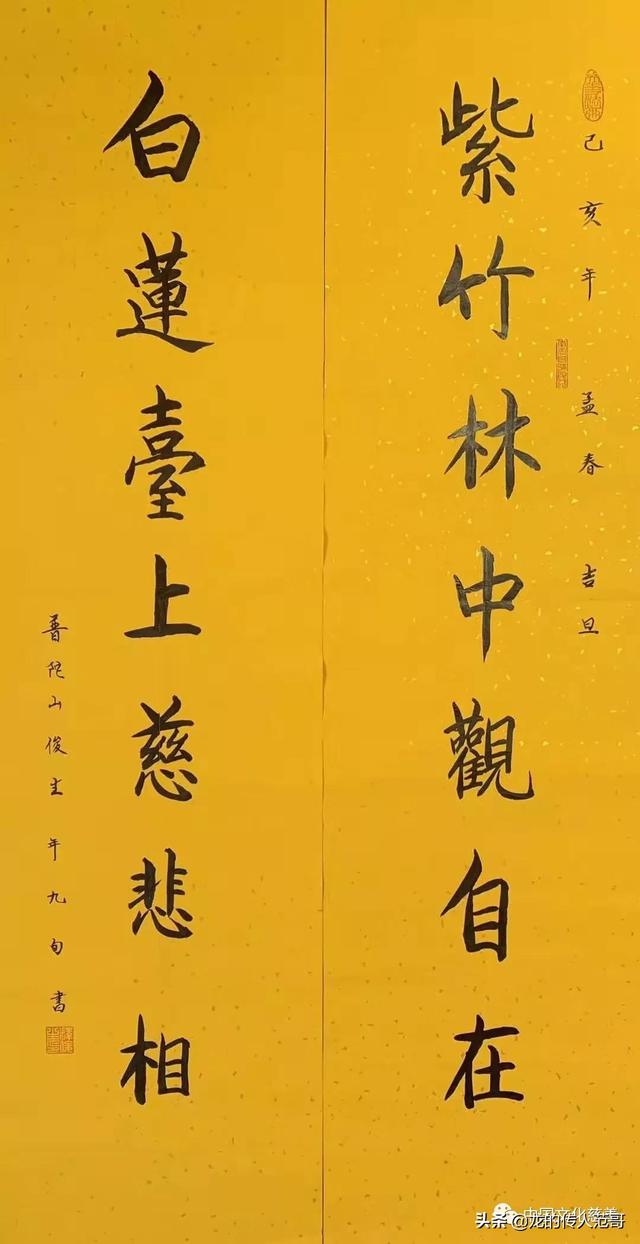 己亥年孟春吉旦
紫竹林中觀自在
白蓮臺上慈悲相
普陀山俊生年九旬書
中国文化慈善
头条@龙的传人范哥